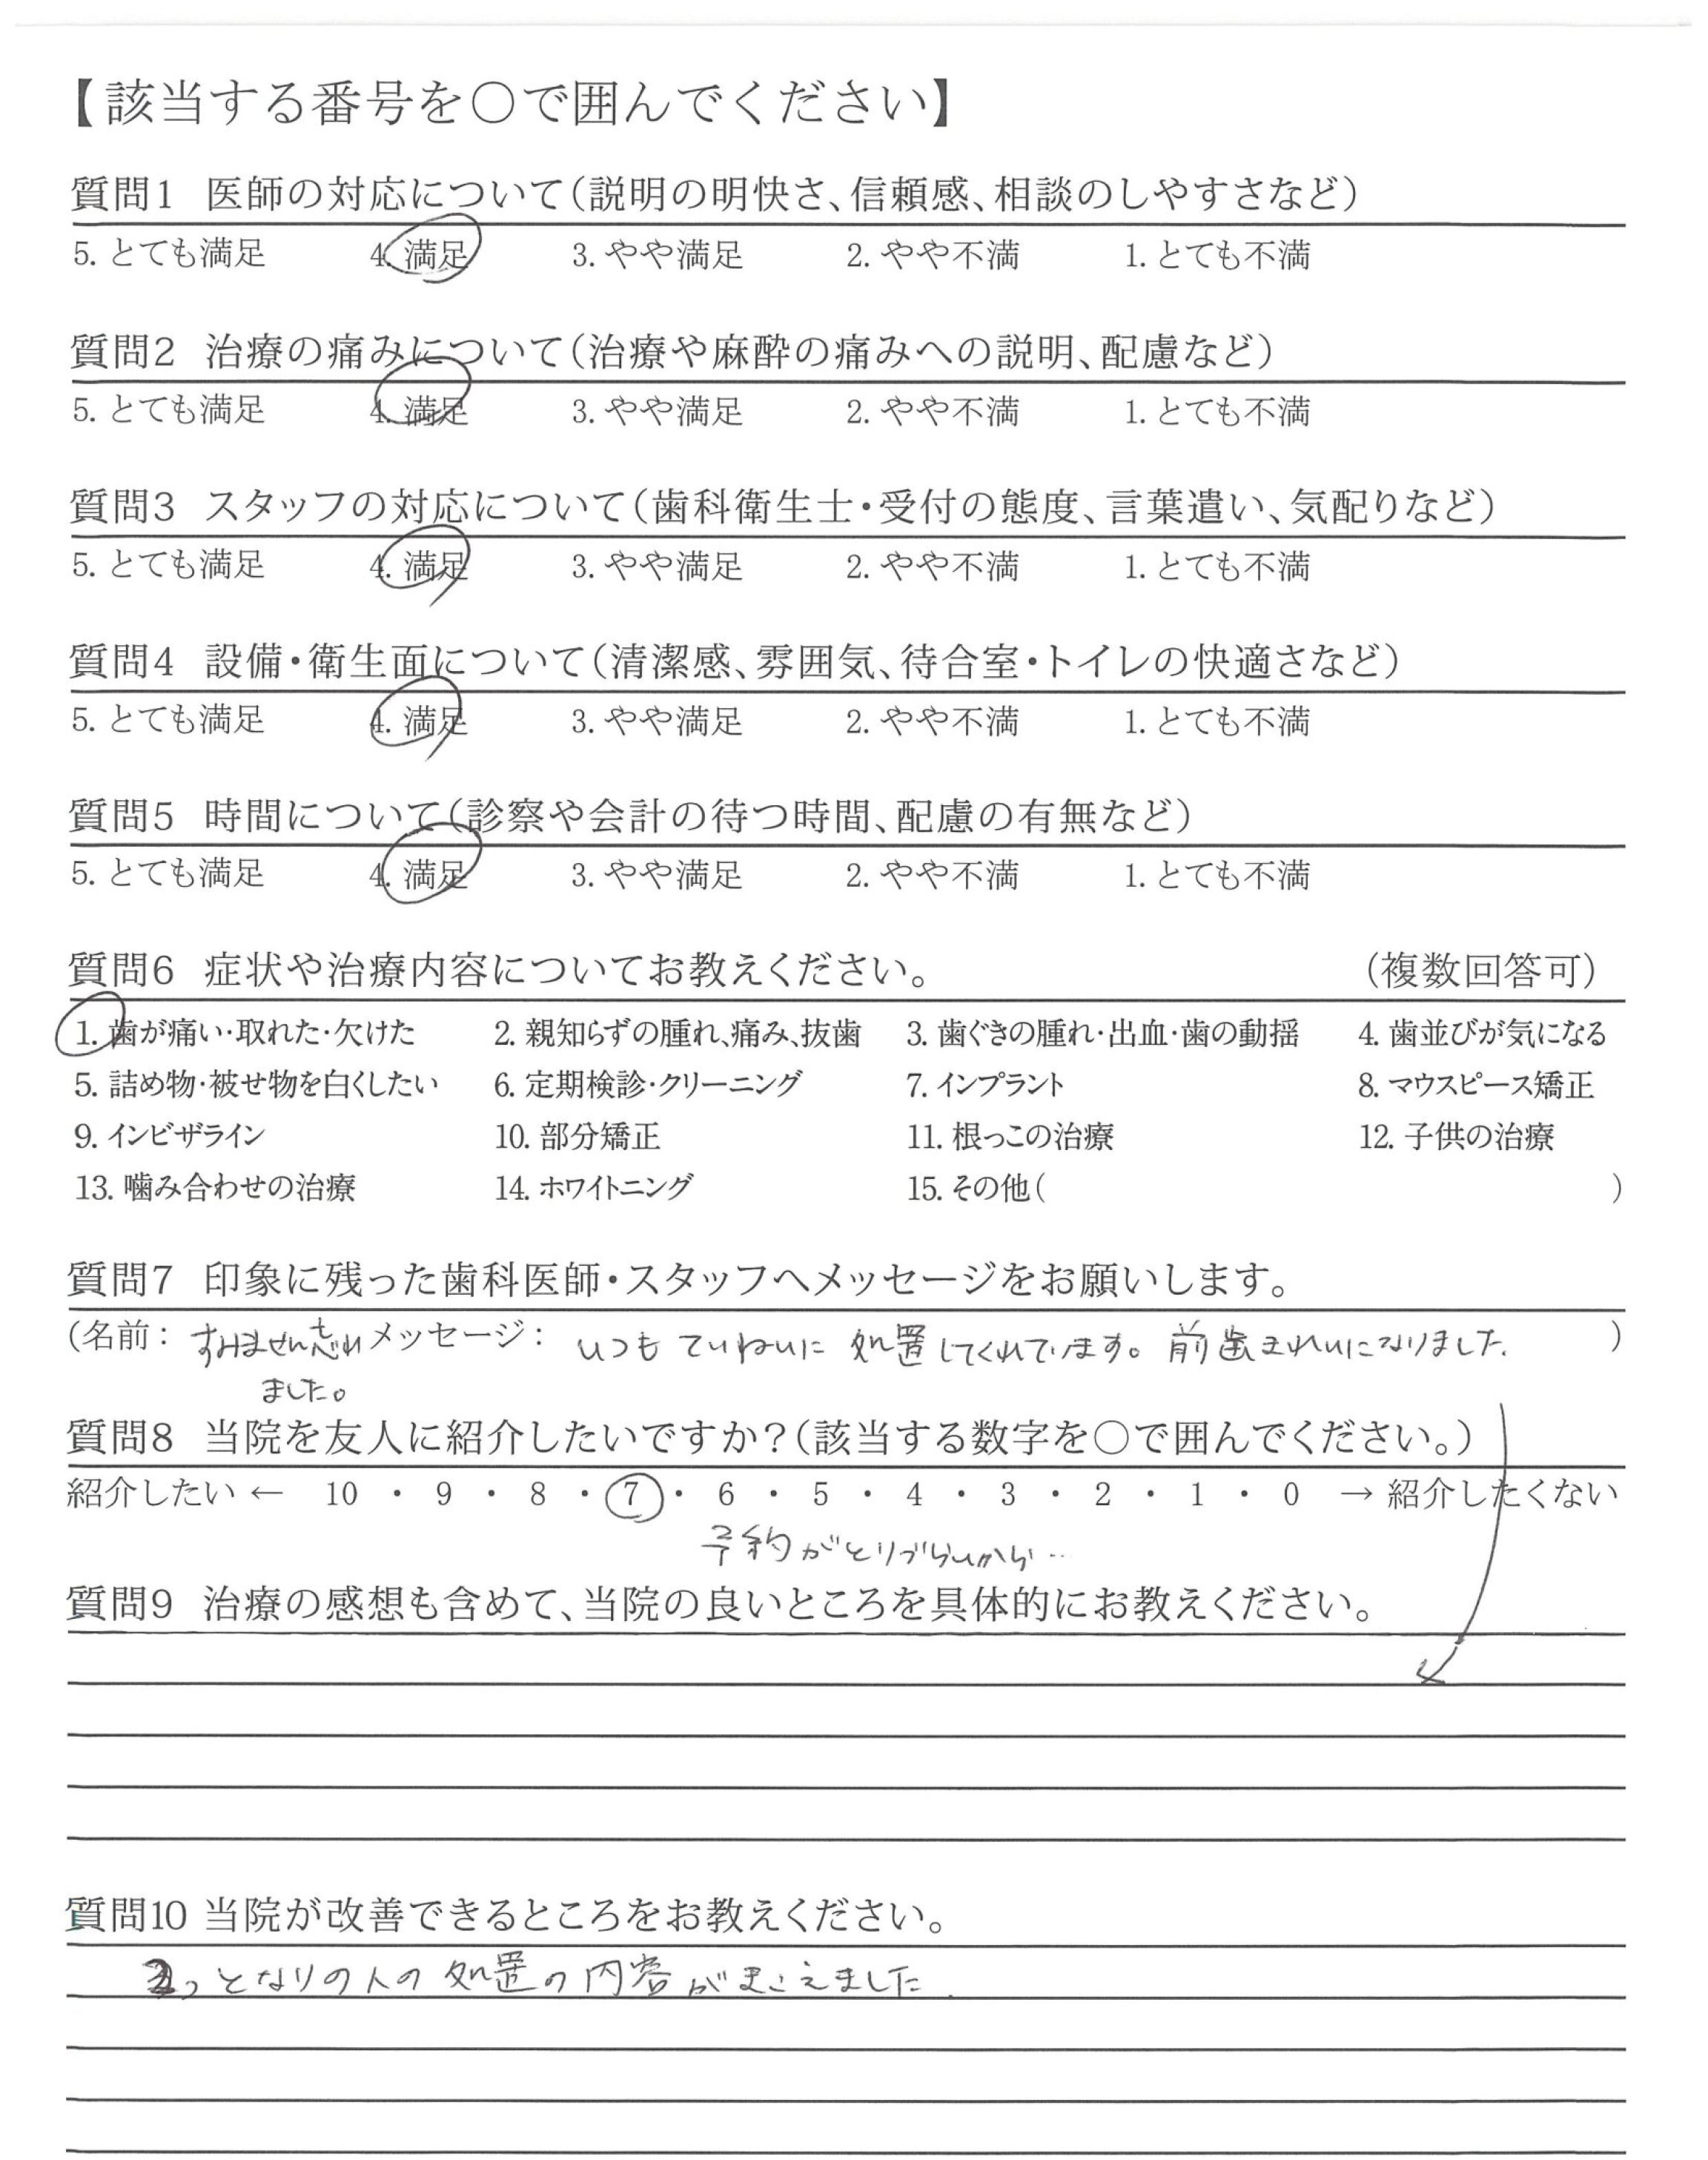 【該当する番号を○で囲んでください】
質問1 医師の対応について(説明の明快さ、信頼感、相談のしやすさなど)
5. とても満足 4. 満足 3. やや満足 2. やや不満 1. とても不満
質問2 治療の痛みについて(治療や麻酔の痛みへの説明、配慮など)
5. とても満足 4. 満足 3. やや満足 2. やや不満 1. とても不満
質問3 スタッフの対応について(歯科衛生士・受付の態度、言葉遣い、気配りなど)
5. とても満足 4. 満足 3. やや満足 2. やや不満 1. とても不満
質問4 設備・衛生面について(清潔感、雰囲気、待合室・トイレの快適さなど)
5. とても満足 4. 満足 3. やや満足 2. やや不満 1. とても不満
質問5 時間について(診察や会計の待つ時間、配慮の有無など)
5. とても満足 4. 満足 3. やや満足 2. やや不満 1. とても不満
質問6 症状や治療内容についてお教えください。 (複数回答可)
1. 歯が痛い・取れた・欠けた 2. 親知らずの腫れ、痛み、抜歯 3. 歯ぐきの腫れ・出血・歯の動揺 4. 歯並びが気になる
5. 詰め物・被せ物を白くしたい 6. 定期検診・クリーニング 7. インプラント 8. マウスピース矯正
9. インビザライン 10. 部分矯正 11. 根っこの治療 12. 子供の治療
13. 噛み合わせの治療 14. ホワイトニング 15. その他( )
質問7 印象に残った歯科医師・スタッフへメッセージをお願いします。
(名前: すみません忘れ メッセージ: いつも ていねいに 処置してくれています。前歯きれいになりました. )
ました。
質問8 当院を友人に紹介したいですか?(該当する数字を○で囲んでください。)
紹介したい ← 10 ・ 9 ・ 8 ・ 7 ・ 6 ・ 5 ・ 4 ・ 3 ・ 2 ・ 1 ・ 0 → 紹介したくない
予約がとりづらいから…
質問9 治療の感想も含めて、当院の良いところを具体的にお教えください。
質問10 当院が改善できるところをお教えください。
となりの人の 処置の内容がきこえました.